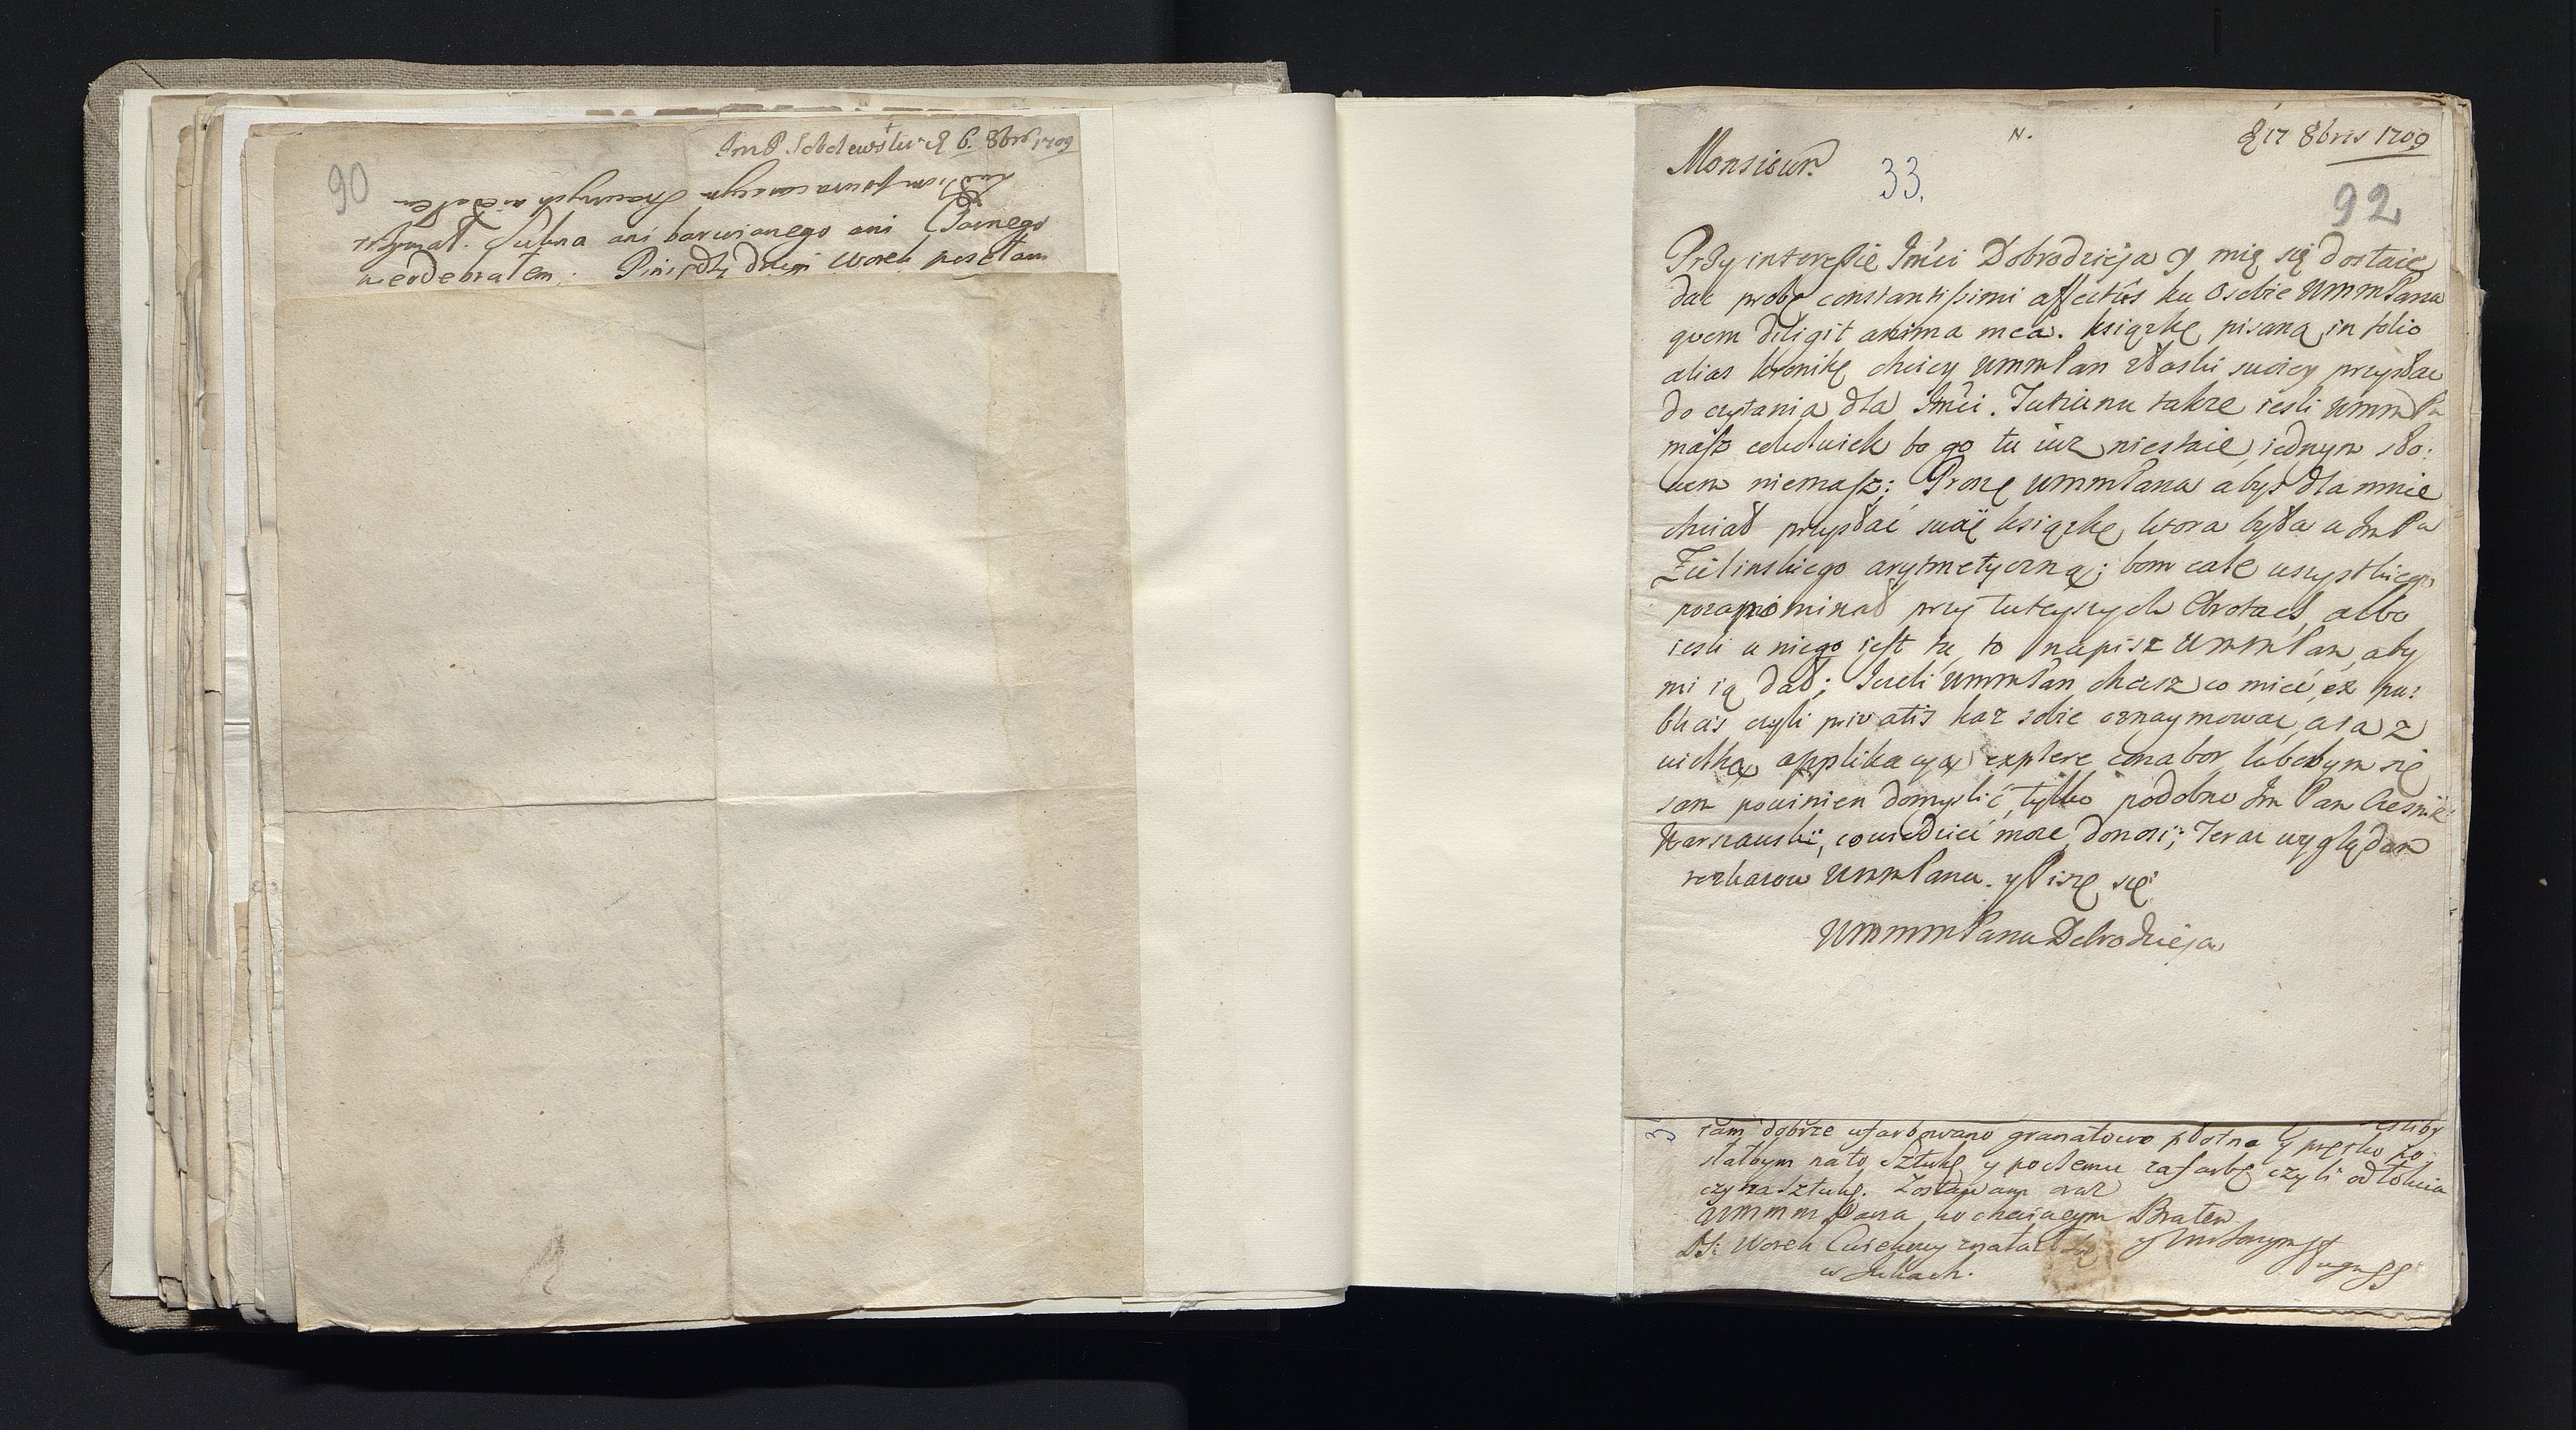 90
6. 8bris 1709
trzymał. Sukna ani barwianego ani Czarnego
nieodebrałem. Worek posełam
N.
17 8bris 1709
Monsieur.
33.
92
Przy interessie Jmci Dobrodzieja y mię się dostaie
dac probę constantissimi affectûs ku Osobie WmmPana
quem diligit anima mea. książkę pisaną in folio
alias kronikę chciey WmmPan z łaski swoiey przysłac
do czytania dla Jmci. Tutiunu takze iesli WmmPn
masz cokolwiek bo go tu iuz niestaie, iednym sło:
wem niemasz; Proszę WmmPana abyś dla mnie
chciał przysłać swoię książkę ktora była u JmPa
Zielinskiego arytmetyczną; bom cale wszystkiego
pozapominał przy tuteyszych Obrotach, albo
iesli u niego iest tu, to napisz WmmPan, aby
mi ią dał; Jezeli WmmPan chcesz co mieć, ex pu:
blicis czyli privatis kaz sobie oznaymowac, a ia z
wielką applikacyą explere conabor, lubobym się
sam powinien domyslić, tylko podobno Jm Pan Czesnik
Warszawski, co wiedzieć moze, donosi; Teraz wyglądam
rozkazow WmmPana. y Piszę się
WmmmPana Dobrodzieja
iesliby
tam dobrze ufarbowano granatowo płotno y prętko po
słałbym na to Sztukę y poczemu za farbę czyli od łokcia
czy za Sztukę. Zostawam oraz
WmmmPana kochaiącym Bratem
y Sługą
DS: Worek Cwiekowy znalazł się
w Jukach.